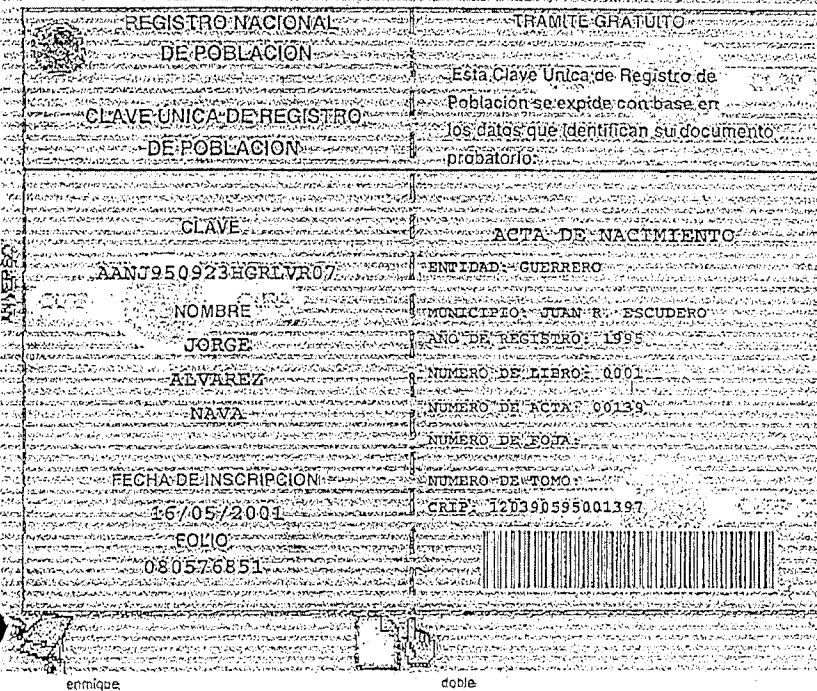 REGISTRO NACIONAL
DE POBLACIÓN
CLAVE UNICA DE REGISTRO
DE POBLACIÓN
CLAVE
AANJ950923HGRLVR07
NOMBRE
JORGE
ALVAREZ
NAVA
FECHA DE INSCRIPCION
16/05/2001
FOLIO
080576851
TRAMITE GRATUITO
Esta Clave Unica de Registro de
Población se expide con base en
los datos que identifican su documento
probatorio:
ACTA DE NACIMIENTO
ENTIDAD: GUERRERO
MUNICIPIO: JUAN R. ESCUDERO
AÑO DE REGISTRO: 1995
NUMERO DE LIBRO: 0001
NUMERO DE ACTA: 00139
NUMERO DE FOJA:
NUMERO DE TOMO:
CRIP: 120390595001397
enmique
doble